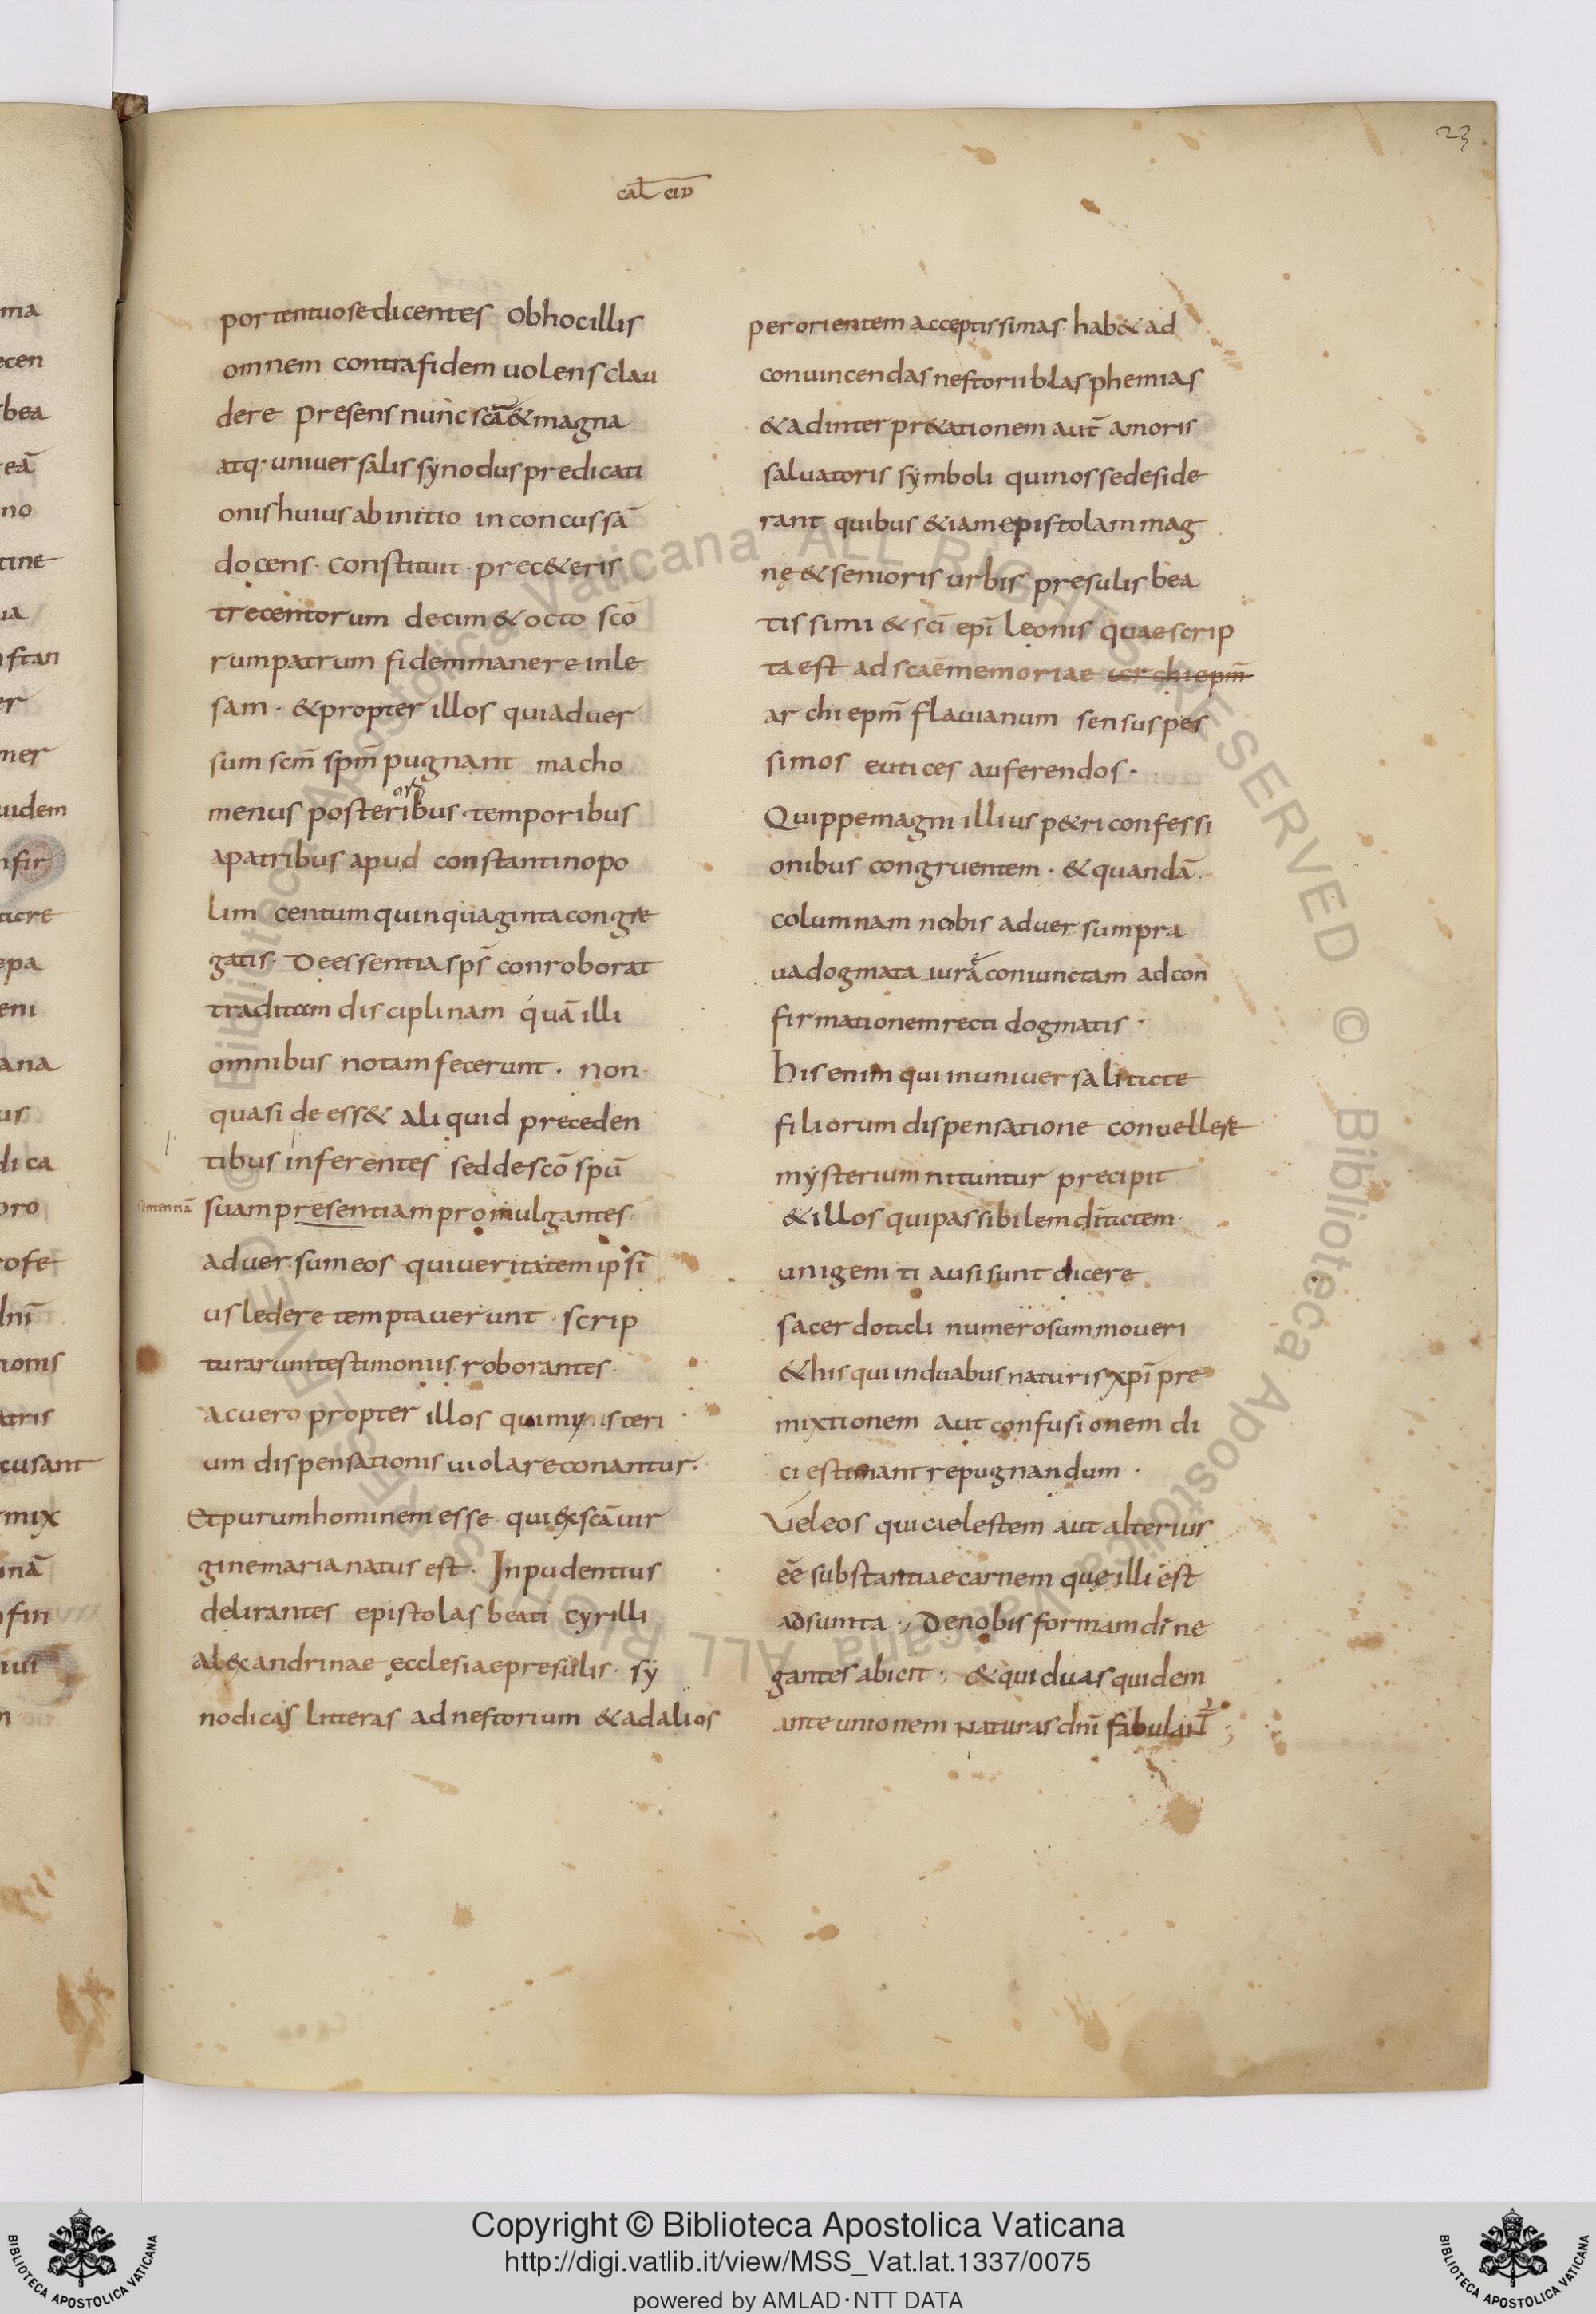 23
cal̄ cið
portentuose dicentes Obhocillis
omnem contrafidem uolens clau
dere presens nunc scā & magna
atq· uniuersalis synodus predicati
onis huius abinitio inconcussā
docens· constituit· prec&eris
trecentorum decim & octo scō
rum patrum fidem manere inle
sam· & propter illos qui aduer
sum scm̄ spm̄ pugnant macho
menus posterioribus· temporibus
apatribus apud constantinopo
lim centum quinquaginta congre
gatis· De essentia sps̄ conroborat
traditam disciplinam quā illi
omnibus notam fecerunt· non
quasi de ess& aliquid preceden
tibus inferentes sed de scō spū
sententiā
suam presentiam promulgantes·
aduersum eos qui ueritatem ipsī
us ledere temptauerunt· scrip
turarum testimoniis roborantes·
ac uero propter illos qui mysteri
um dispensationis uiolare conantur·
Et purum hominem esse qui ex scā uir
gine maria natus est· Inpudentius
delirantes epistolas beati cyrilli
alexandrinae ecclesiae presulis· sy
nodicas litteras ad nestorium & ad alios
per orientem acceptissimas· hab& ad
conuincendas nestorii blasphemias
& ad interpr&ationem aut̄ amoris
saluatoris symboli qui nosse deside
rant quibus &iam epistolam mag
nę & senioris urbis presulis bea
tissimi & scī epī leonis quae scrip
ta est ad scāe memoriae archi epm̄
archi epm̄ flauianum sensus pes
simos eutices auferendos·
Quippe magni illius p&ri confessi
onibus congruentem· & quandā
columnam nobis aduersum pra
ua dogmata iurae coniunctam ad con
firmationem recti dogmatis·
his enim qui in uniuersalitate
filiorum dispensatione conuellere
mysterium nituntur precipit
& illos qui passibilem dītatem
unigeniti ausi sunt dicere
sacerdotali numero summoueri
& his qui induabus naturis xp̄ī pre
mixtionem aut confusionem di
ci estimant repugnandum·
Vel eos qui caelestem aut alterius
eē substantiae carnem quę illi est
adsumta·, De nobis formam dī ne
gantes abicit·, & qui duas quidem
ante unionem naturas dnī fabulant̄
Copyright © Biblioteca Apostolica Vaticana
http://digi.vatlib.it/view/MSS_Vat.lat.1337/0075
powered by AMLAD·NTT DATA